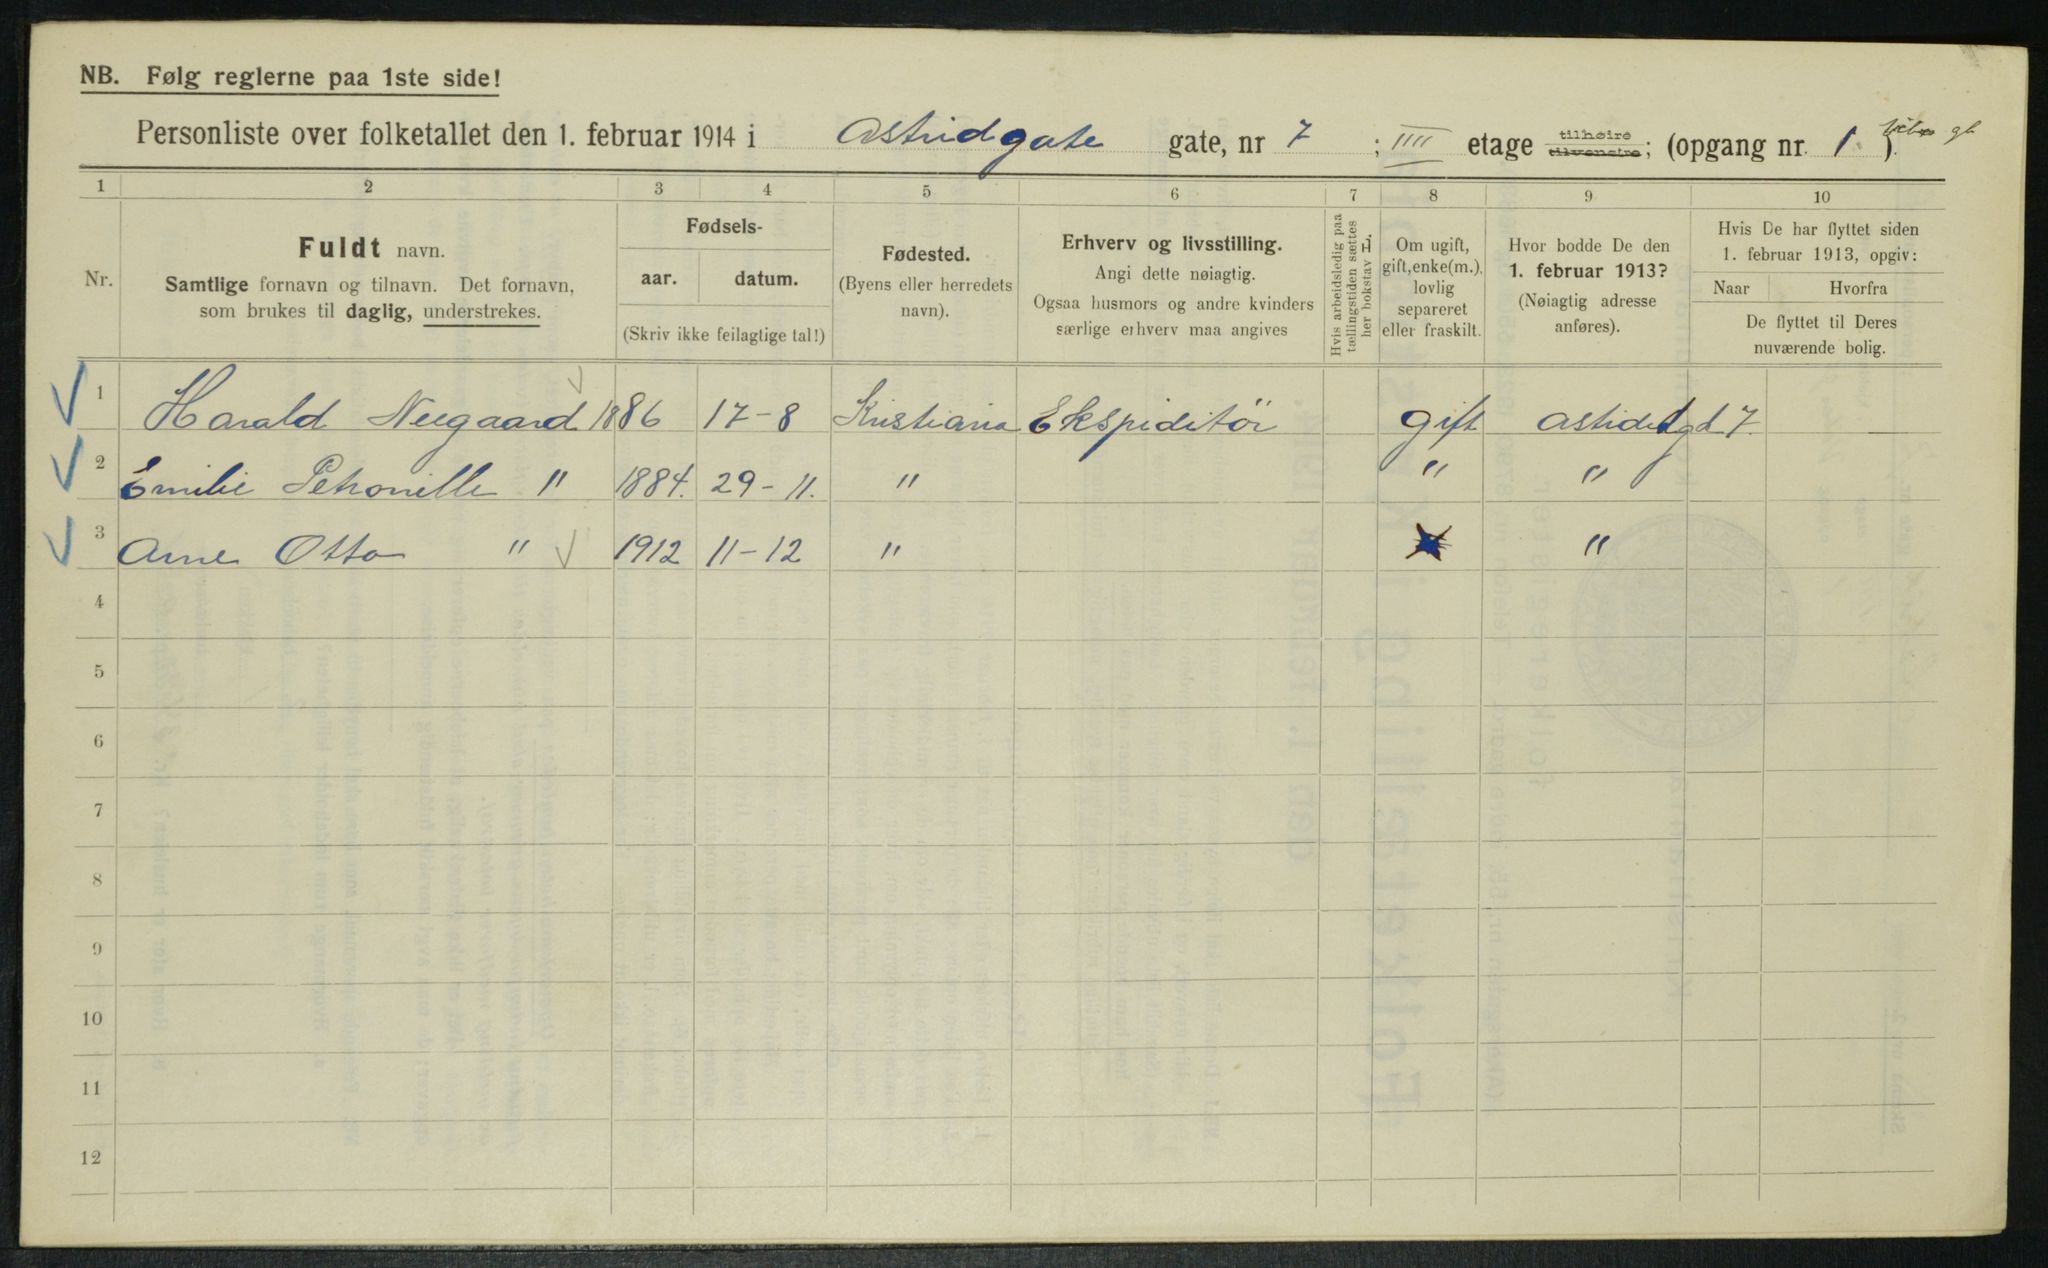 NB. Følg reglerne paa 1ste side!
Personliste over folketallet den 1. februar 1914 i Astridgate gate, nr 7 ; IIII etage tilhøire tilvenstre; (opgang nr. 1 ).
1 2 3 4 5 6 7 8 9 10
Nr.
Fuldt navn.
Samtlige fornavn og tilnavn. Det fornavn,
som brukes til daglig, understrekes.
Fødsels-
aar. datum.
(Skriv ikke feilagtige tal!)
Fødested.
(Byens eller herredets
navn).
Erhverv og livsstilling.
Angi dette nøiagtig.
Ogsaa husmors og andre kvinders
særlige erhverv maa angives
Hvis arbeidsledig paa
tællingstiden sættes
her bokstav L.
Om ugift,
gift, enke(m.),
lovlig
separeret
eller fraskilt.
Hvor bodde De den
1. februar 1913?
(Nøiagtig adresse
anføres).
Hvis De har flyttet siden
1. februar 1913, opgiv:
Naar Hvorfra
De flyttet til Deres
nuværende bolig.
1 Harald Neegaard 1886 17-8 Kristiania Ekspiditör gift Astidgt 7.
2 Emilie Petronille " 1884. 29-11. " " "
3 Arne Otto " 1912 11-12 " "
4
5
6
7
8
9
10
11
12